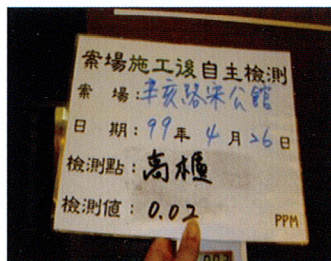 案場施工後自主檢測
案場:辛亥路宋公館
日期:99年4月26日
檢測點:高櫃
檢測値:0.02 PPM
0.02